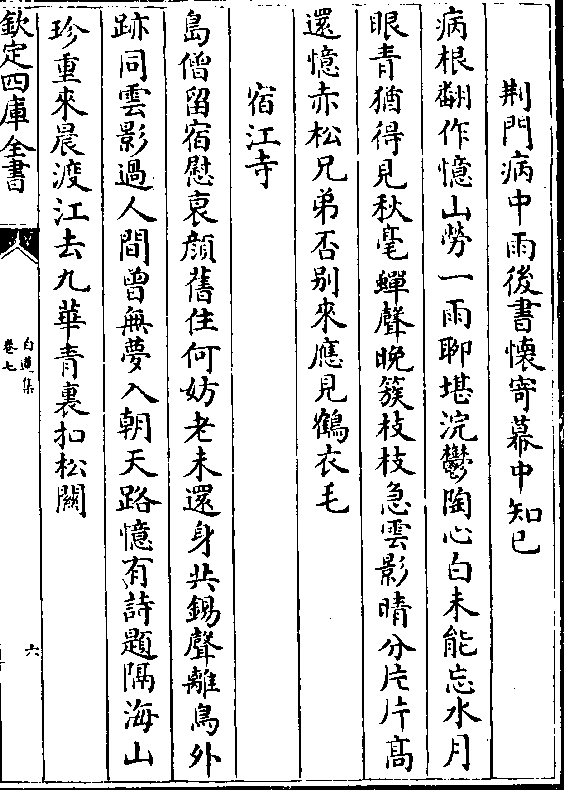 荆門病中雨後書懷寄幕中知已
病根翻作憶山勞一雨聊堪浣鬱陶心白未能忘水月
眼青猶得見秋毫蟬聲晚簇枝枝急雲影晴分片片髙
還憶赤松兄弟否别來應見鶴衣毛
宿江寺
島僧留宿慰衰顔舊住何妨老未還身共錫聲離鳥外
跡同雲影過人間曾無夢入朝天路憶有詩題隔海山
珍重來晨渡江去九華青裏扣松闗
欽定四庫全書
白蓮集
卷七
六